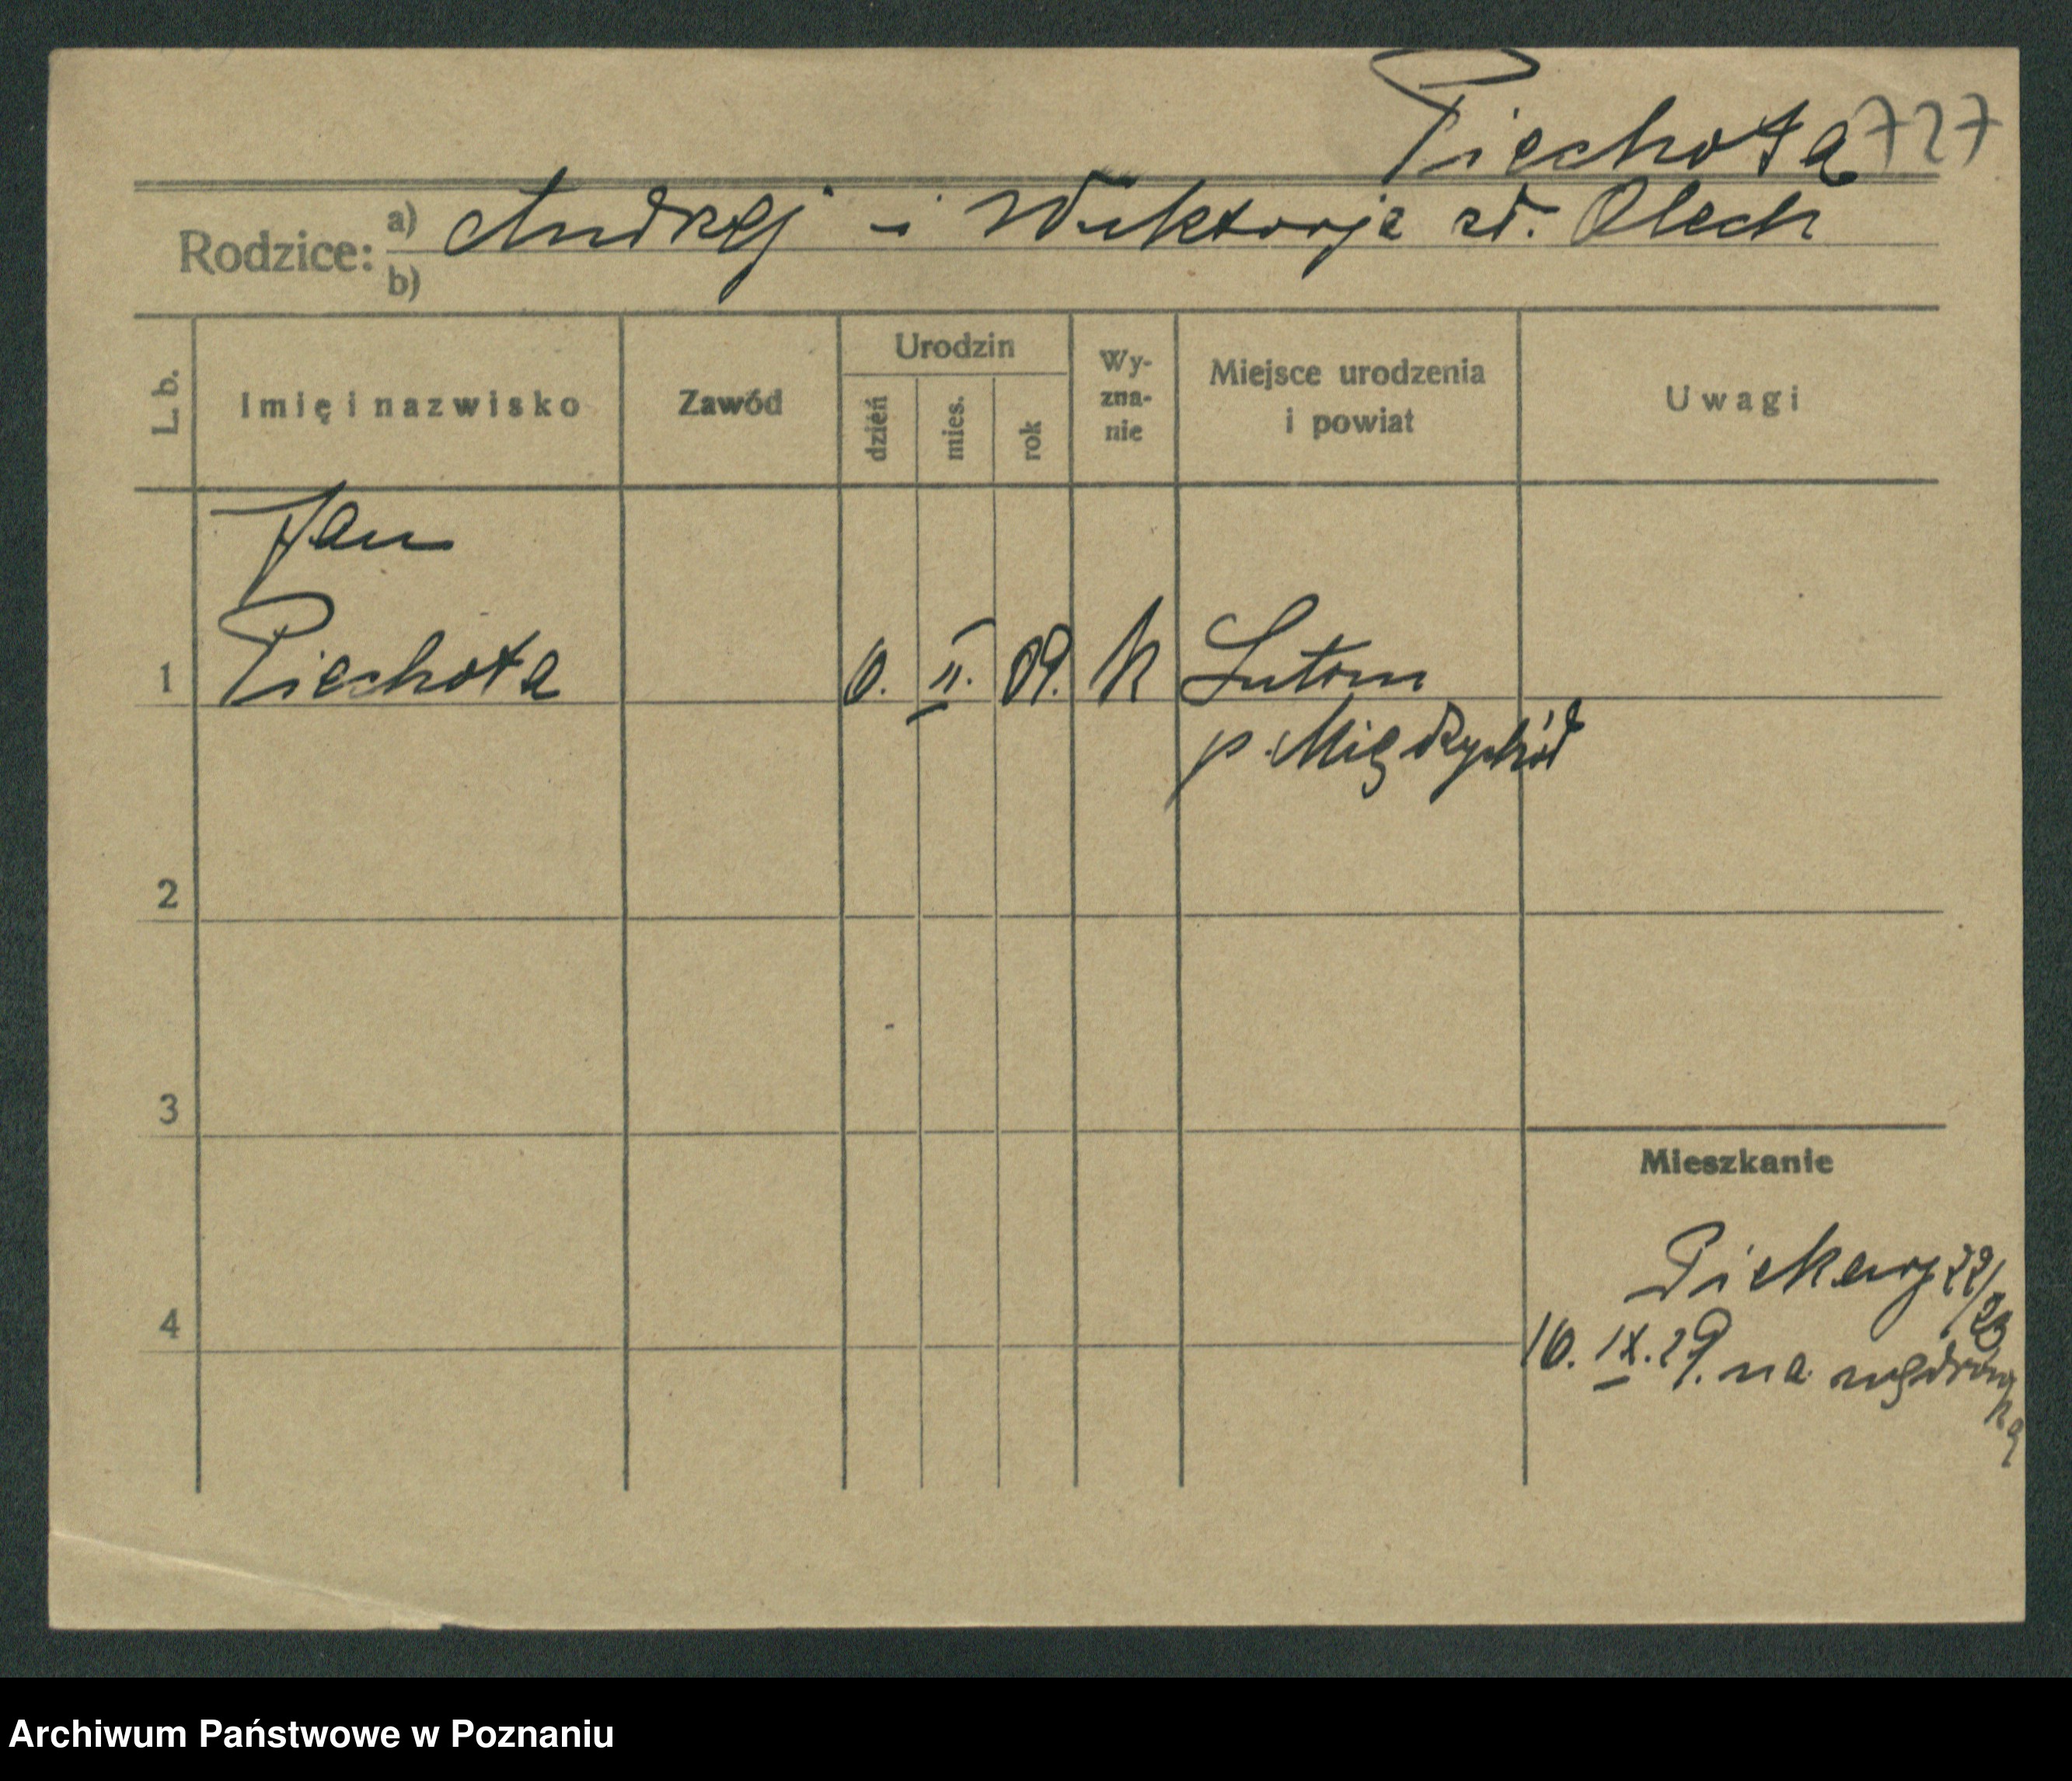 Piechota 727
Rodzice: a) Andrzej i Wiktorja zd. Olech
b)
L. b.
Imię i nazwisko
Zawód
Urodzin
dzień
mies.
rok
Wy-
zna-
nie
Miejsce urodzenia
i powiat
Uwagi
Jan
1 Piechota 6. II. 09. K Lutom
p. Międzychód
2
3
Mieszkanie
Piekary 22/23
4
16. IX. 29. na wędrówkę
Archiwum Państwowe w Poznaniu